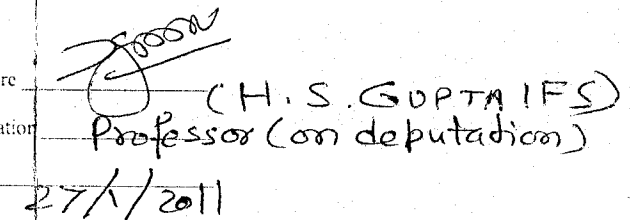 re (H. S. GUPTA IFS)
ation Professor (on deputation)
27/1/2011